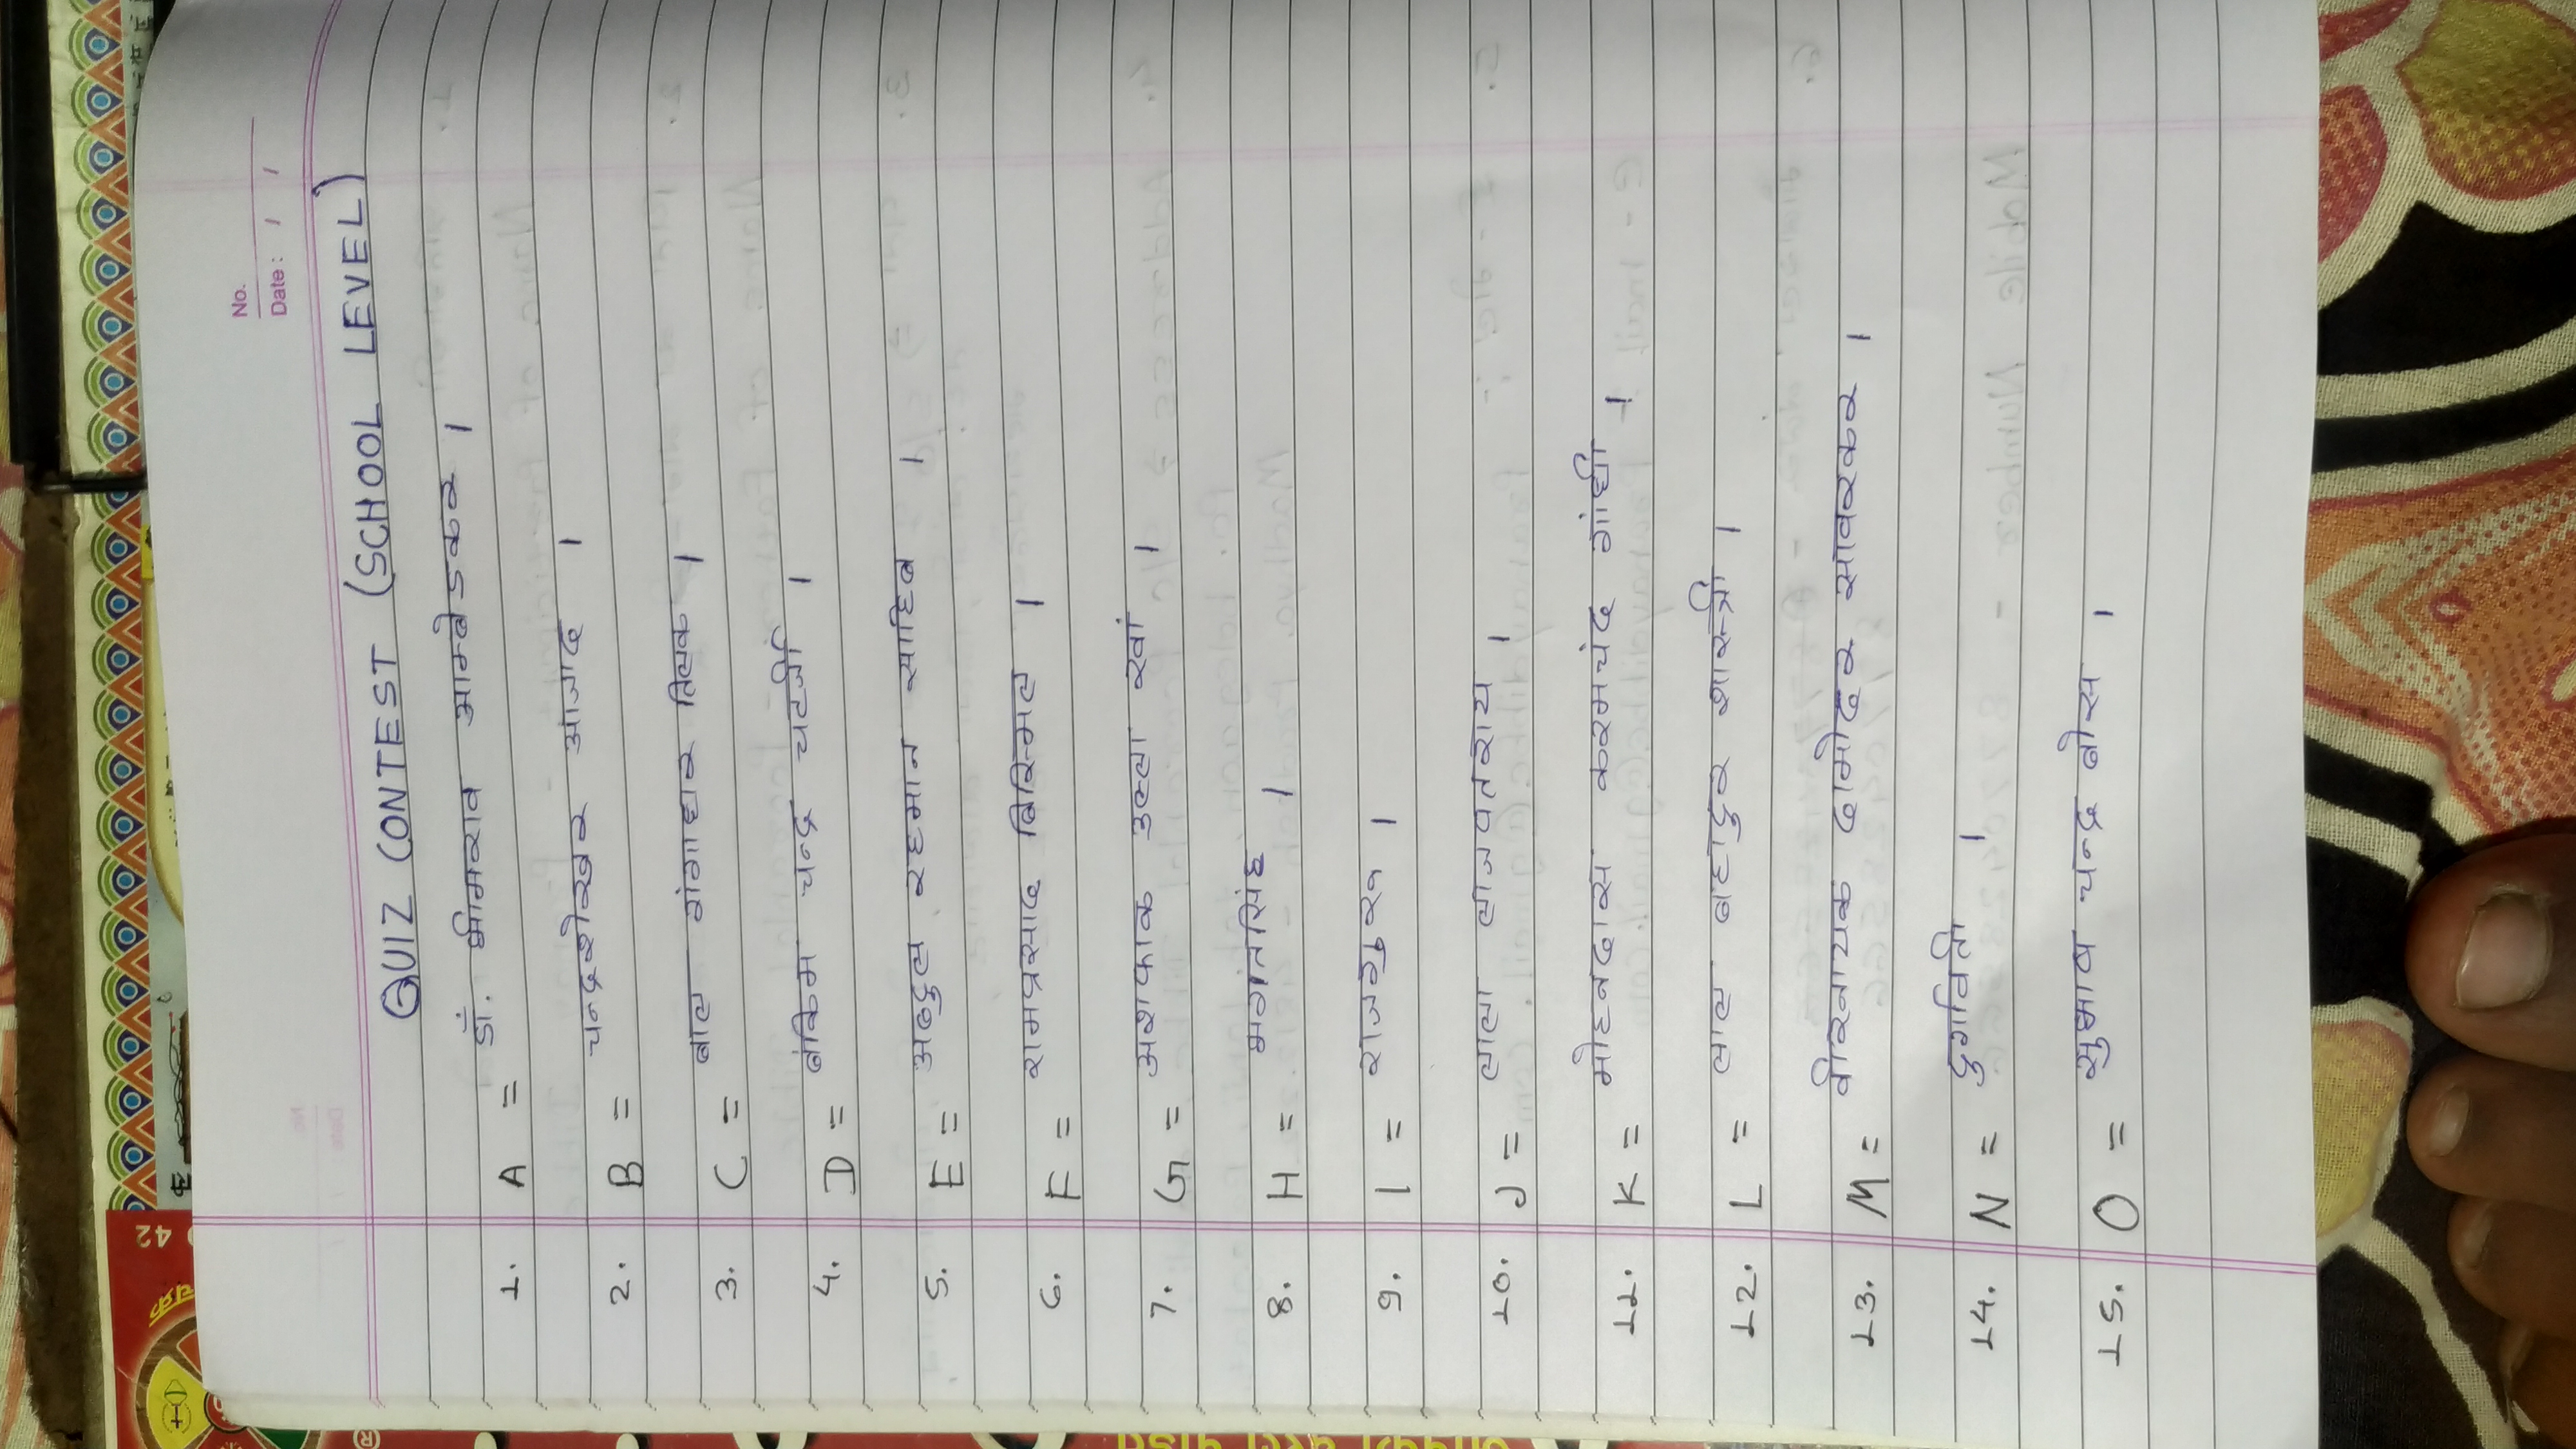 No.
Date : / /
QUIZ CONTEST (SCHOOL LEVEL)
1. A = डॉ. भीमराव आम्बेडकर ।
2. B = चन्द्रशेखर आजाद ।
3. C = बाल गंगाधर तिलक ।
4. D = बंकिम चन्द्र चटर्जी ।
5. E = अब्दुल रहमान साहिब ।
6. F = रामप्रसाद बिस्मिल ।
7. G = अशफाक उल्ला खां ।
8. H = भगतसिंह ।
9. I = राजगुरु ।
10. J = लाला लाजपतराय ।
11. K = मोहनदास करमचंद गांधी ।
12. L = लाल बहादुर शास्त्री ।
13. M = वीरनायक दामोदर सावरकर ।
14. N = दुर्गावती ।
15. O = सुभाष चन्द्र बोस ।
42